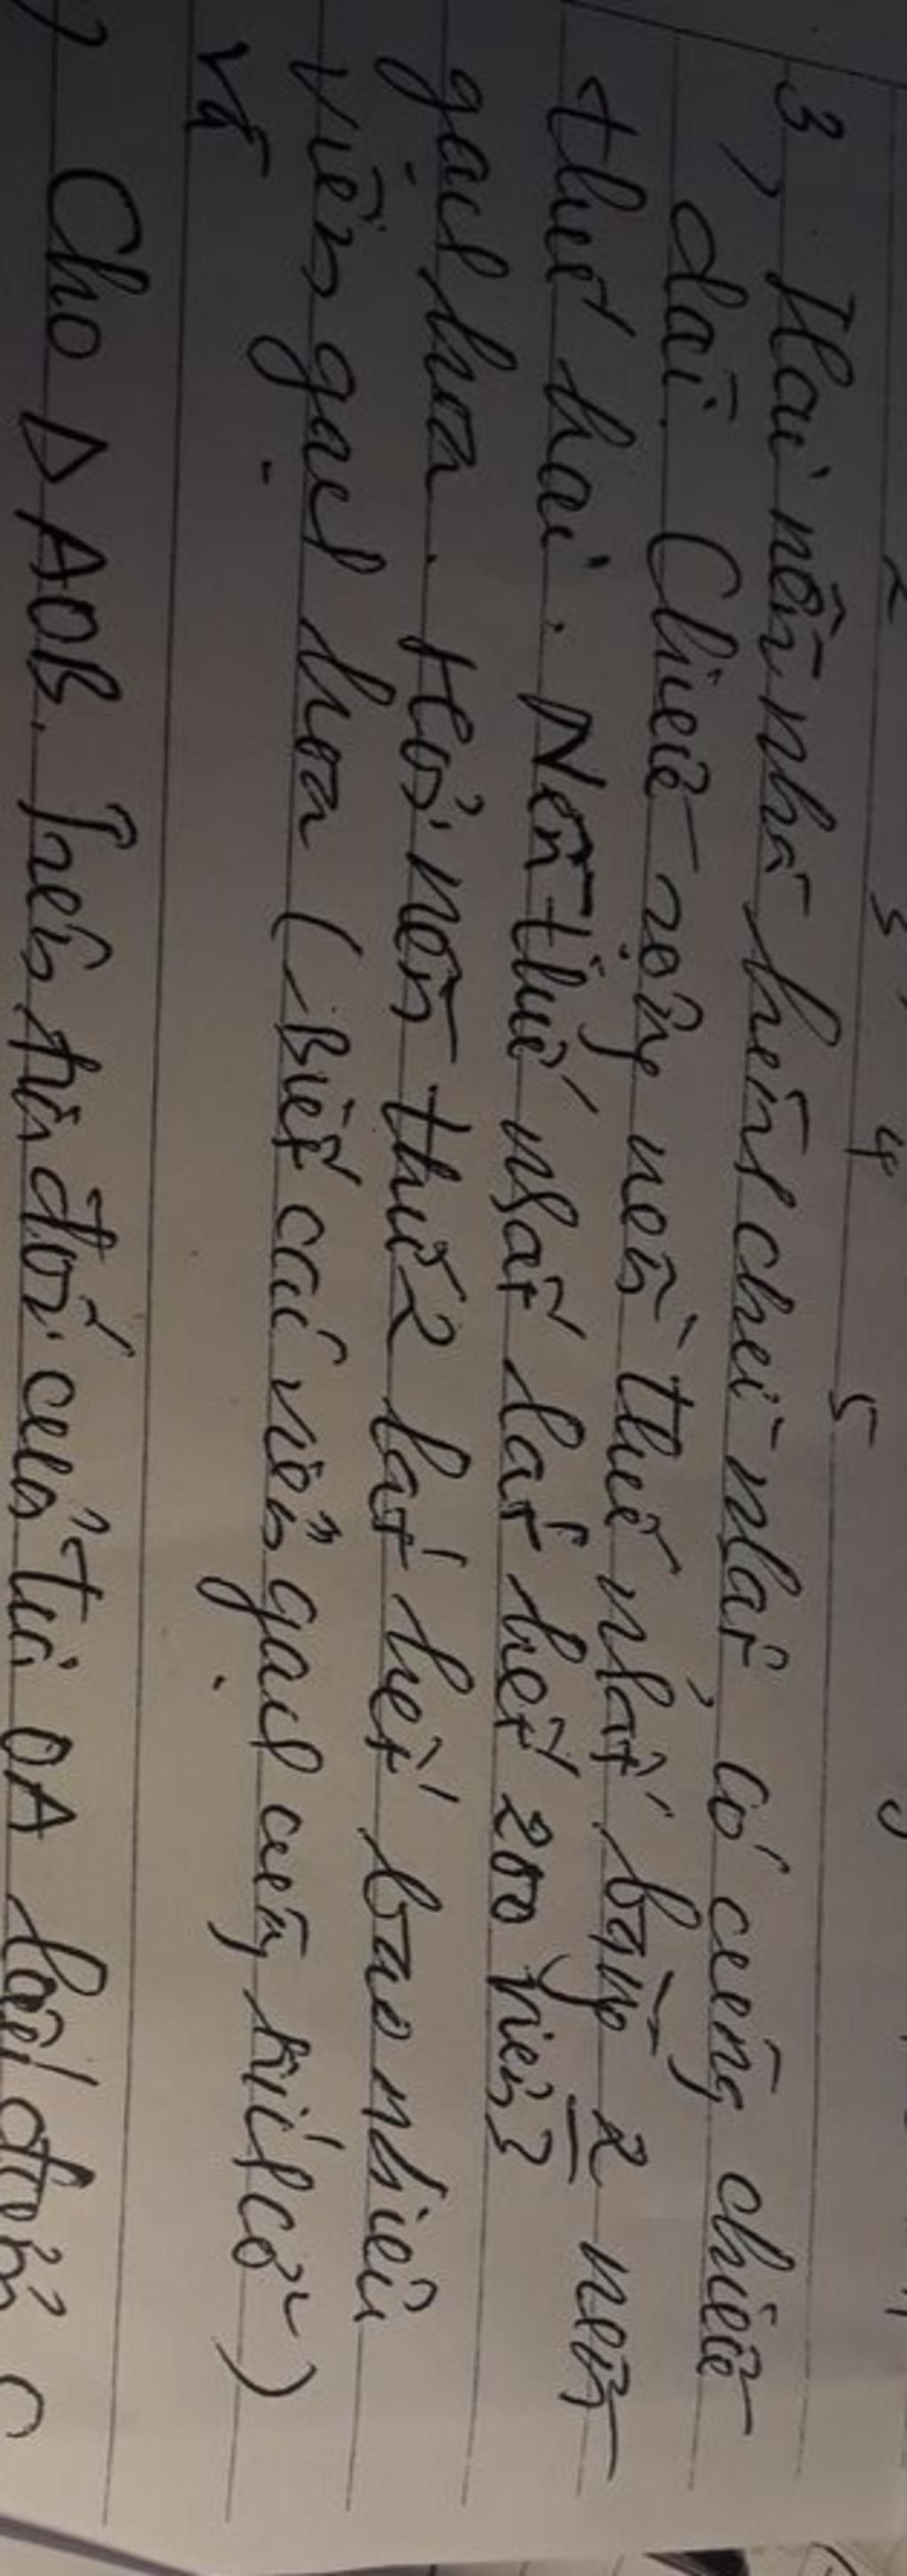 2 3 4 5
3, Hai nền nhà hình chữ nhật có cùng chiều
dài. Chiều rộng nền thứ nhất bằng 2 nền
thứ hai. Nền thứ nhất lát hết 200 viên
gạch hoa. Hỏi nền thứ 2 lát hết bao nhiêu
viên gạch hoa (Biết các viên gạch cùng kích cỡ)
Cho Δ AOB. Trên tia đối của tia OA lấy điểm C